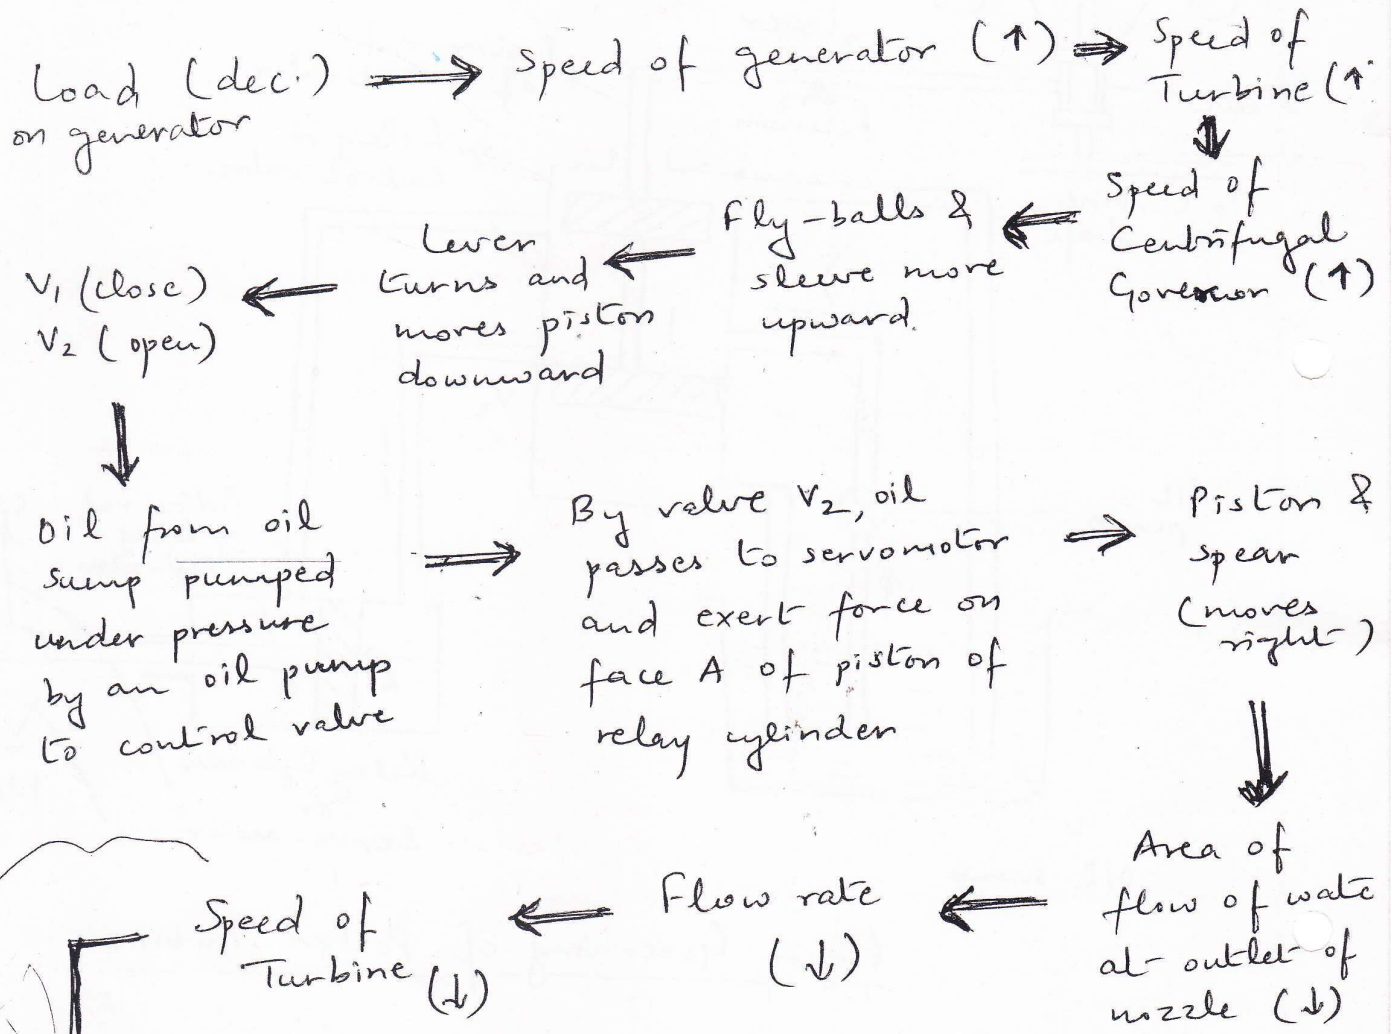 Load (dec.)
on generator
Speed of generator (↑)
Speed of
Turbine (↑
Speed of
Centrifugal
Governor (↑)
Fly-balls &
sleeve move
upward.
Lever
turns and
moves piston
downward
V1 (close)
V2 (open)
Oil from oil
sump pumped
under pressure
by an oil pump
to control valve
By valve V2, oil
passes to servomotor
and exert force on
face A of piston of
relay cylinder
Piston &
spear
(moves
right)
Area of
flow of wate
at outlet of
nozzle (↓)
Flow rate
(↓)
Speed of
Turbine (↓)